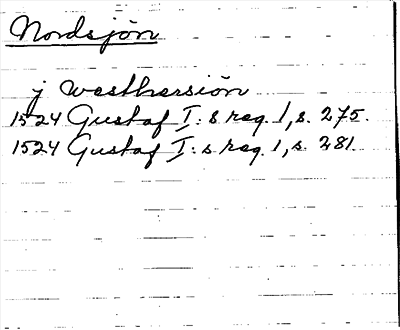 Nordsjön
j westhersiön
1524 Gustaf I:s reg. 1, s. 275.
1524 Gustaf I:s reg. 1, s. 281.